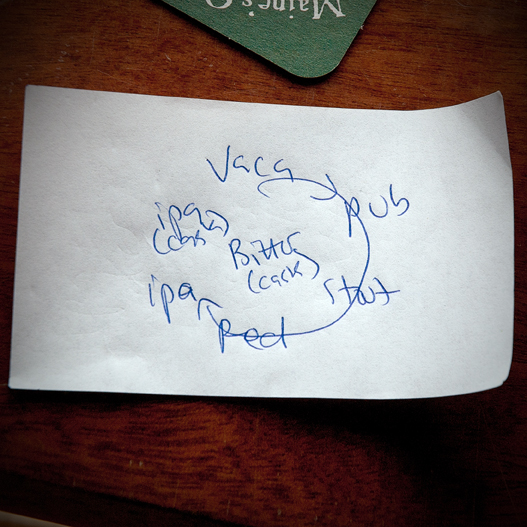 Maine's
Vaca
pub
ipa
(cask)
Bitter
(cask)
stout
ipa
Red